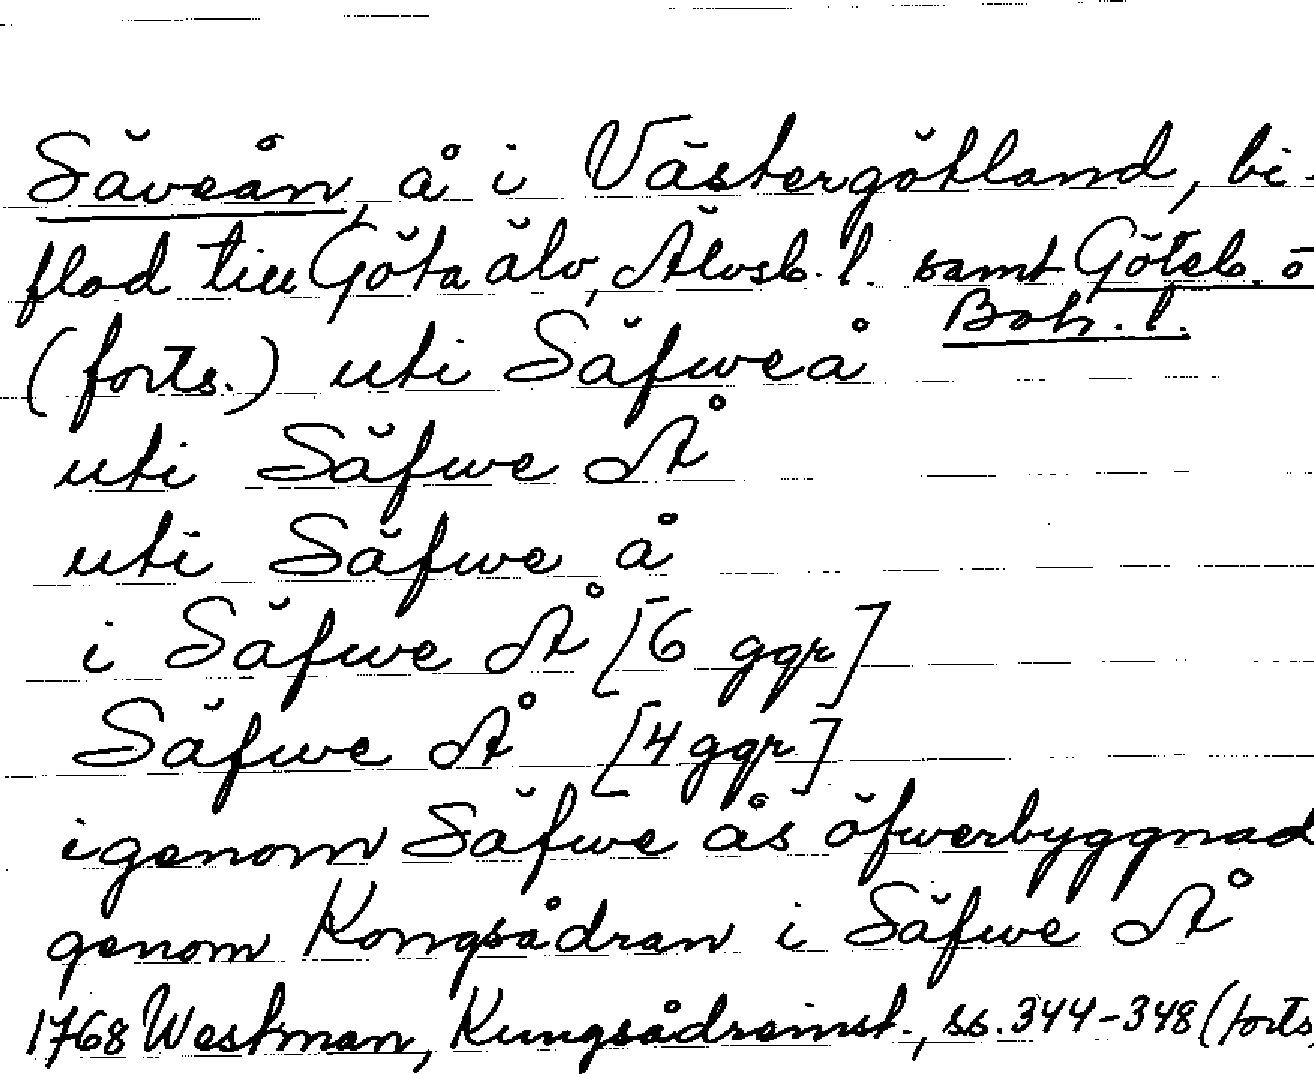 Säveån, å i Västergötland, bi-
flod till Göta älv, Älvsb. l. samt Göteb. o
Boh. l.
(forts.) uti Säfweå
uti Säfwe Å
uti Säfwe å
i Säfwe Å [6 ggr]
Säfwe Å [4 ggr]
igenom Säfwe ås öfwerbyggnad
genom Kongsådran i Säfwe Å
1768 Westman, Kungsådreinst., ss. 344-348 (forts.